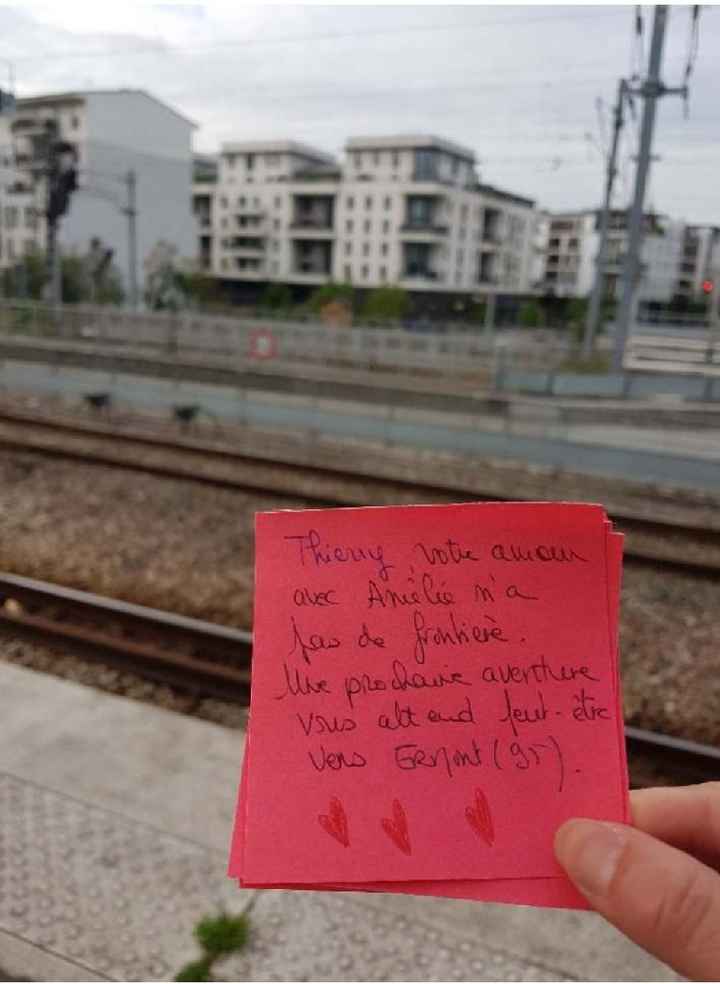 Thierry, votre amour
avec Amélie n'a
pas de frontière.
Une prochaine aventure
vous attend peut-être
vers Ermont (95).